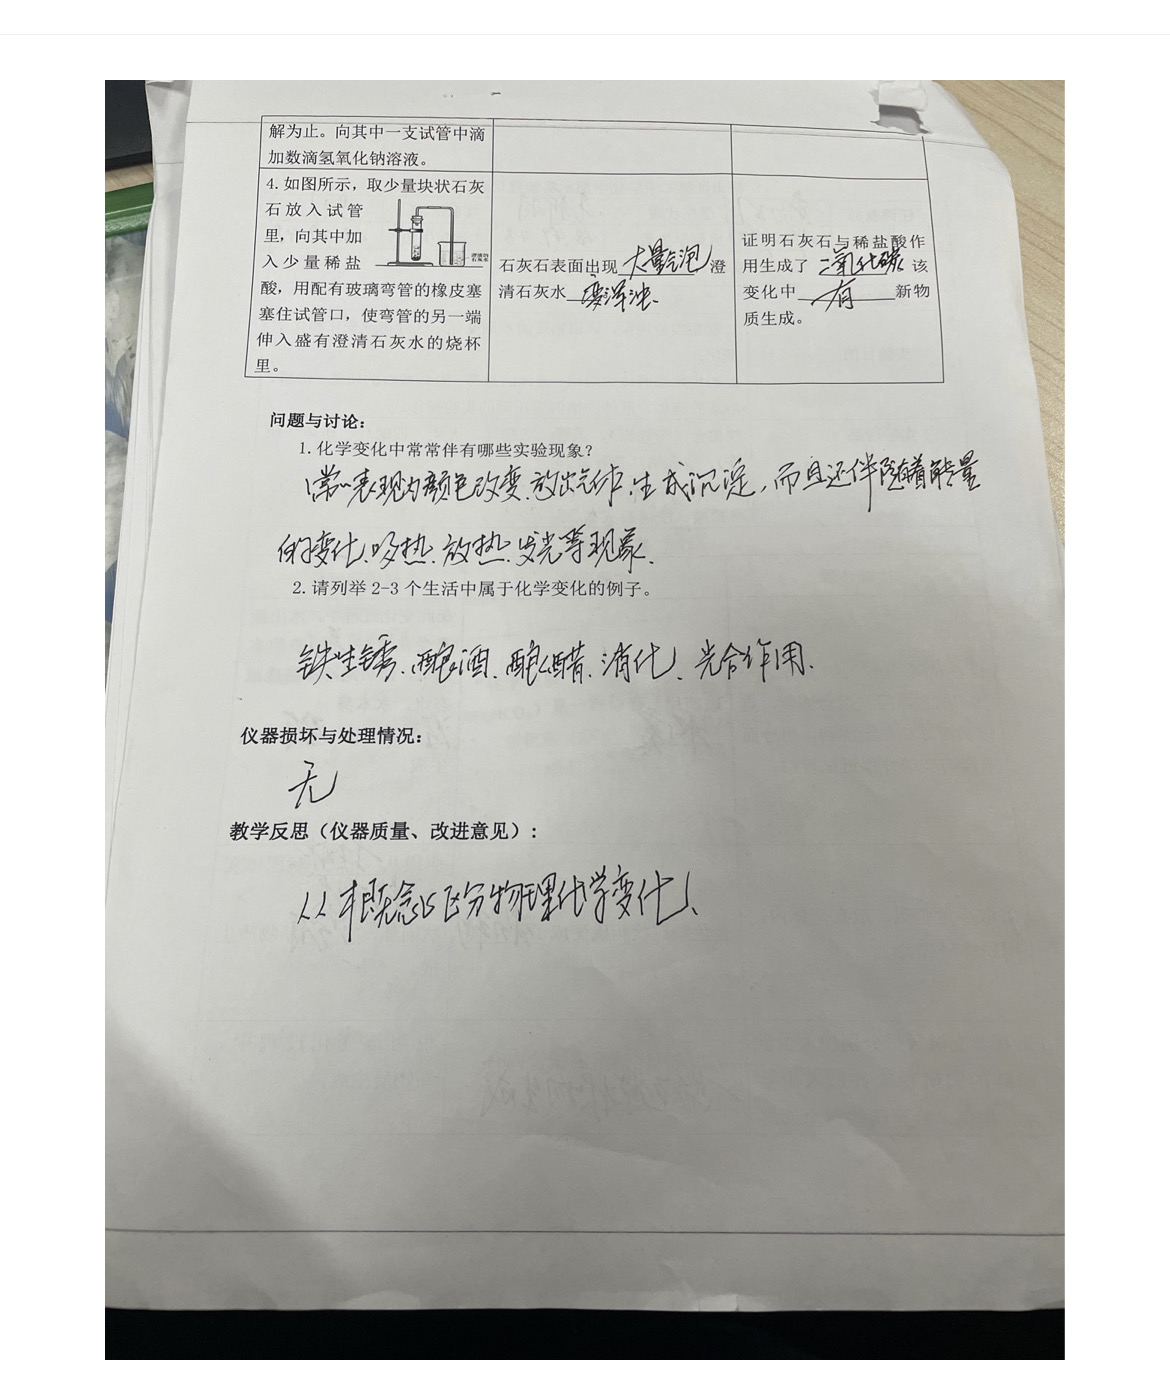 解为止。向其中一支试管中滴
加数滴氢氧化钠溶液。
4.如图所示，取少量块状石灰
石放入试管
里，向其中加
入少量稀盐
酸，用配有玻璃弯管的橡皮塞
塞住试管口，使弯管的另一端
伸入盛有澄清石灰水的烧杯
里。
石灰石表面出现大量气泡 澄
清石灰水变浑浊.
证明石灰石与稀盐酸作
用生成了二氧化碳 该
变化中 有 新物
质生成。
问题与讨论：
1.化学变化中常常伴有哪些实验现象？
常表现为颜色改变、放出气体、生成沉淀，而且还伴随着能量
的变化、吸热、放热、发光等现象.
2.请列举2-3个生活中属于化学变化的例子。
铁生锈、酿酒、酿醋、消化、光合作用.
仪器损坏与处理情况：
无
教学反思（仪器质量、改进意见）：
从概念区分物理化学变化、